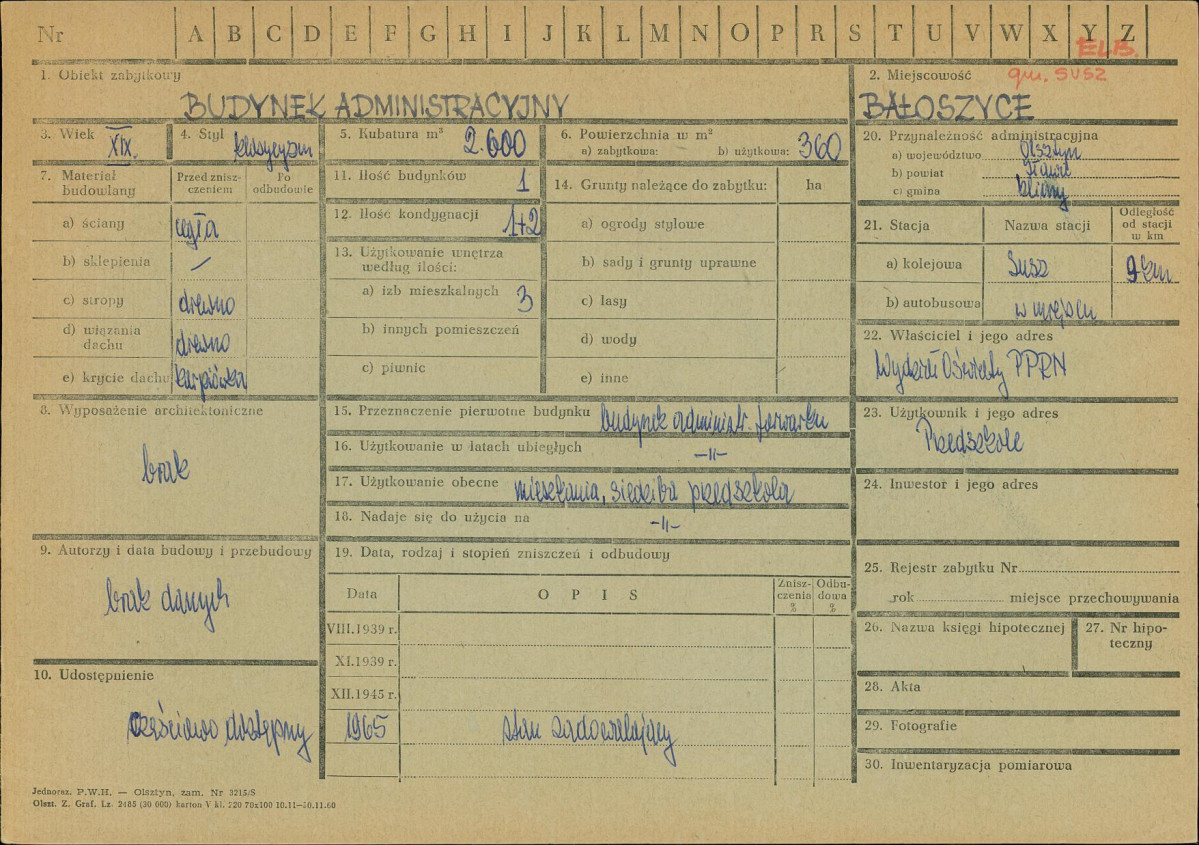 Nr A B C D E F G H I J K L M N O P R S T U V W X Y Z
ELB.
gm. SUSZ
1. Obiekt zabytkowy
BUDYNEK ADMINISTRACYJNY
2. Miejscowość
BAŁOSZYCE
3. Wiek
XIX.
4. Styl
klasycyzm
5. Kubatura m³
2.600
6. Powierzchnia w m²
a) zabytkowa: b) użytkowa: 360
7. Materiał budowlany
Przed zniszczeniem
Po odbudowie
a) ściany cegła
b) sklepienia —
c) stropy drewno
d) wiązania dachu drewno
e) krycie dachu karpiówka
8. Wyposażenie architektoniczne
brak
9. Autorzy i data budowy i przebudowy
brak danych
10. Udostępnienie
częściowo dostępny
11. Ilość budynków 1
12. Ilość kondygnacji 1+2
13. Użytkowanie wnętrza
według ilości:
a) izb mieszkalnych 3
b) innych pomieszczeń
c) piwnic
14. Grunty należące do zabytku: ha
a) ogrody stylowe
b) sady i grunty uprawne
c) lasy
d) wody
e) inne
15. Przeznaczenie pierwotne budynku budynek administr. folwarku
16. Użytkowanie w latach ubiegłych -II-
17. Użytkowanie obecne mieszkania, siedziba przedszkola
18. Nadaje się do użycia na -II-
19. Data, rodzaj i stopień zniszczeń i odbudowy
Data OPIS Zniszczenia % Odbudowa %
VIII.1939 r.
XI.1939 r.
XII.1945 r.
1965 stan zadowalający
20. Przynależność administracyjna
a) województwo Olsztyn
b) powiat Iława
c) gmina
21. Stacja Nazwa stacji Odległość od stacji w km
a) kolejowa Susz 9 km
b) autobusowa w miejscu
22. Właściciel i jego adres
Wydział Oświaty PPRN
23. Użytkownik i jego adres
Przedszkole
24. Inwestor i jego adres
25. Rejestr zabytku Nr
rok miejsce przechowywania
26. Nazwa księgi hipotecznej
27. Nr hipoteczny
28. Akta
29. Fotografie
30. Inwentaryzacja pomiarowa
Jednoraz. P.W.H. — Olsztyn, zam. Nr 3215/S
Olszt. Z. Graf. Lz. 2485 (30 000) karton V kl. 220 70x100 10.11—30.11.60